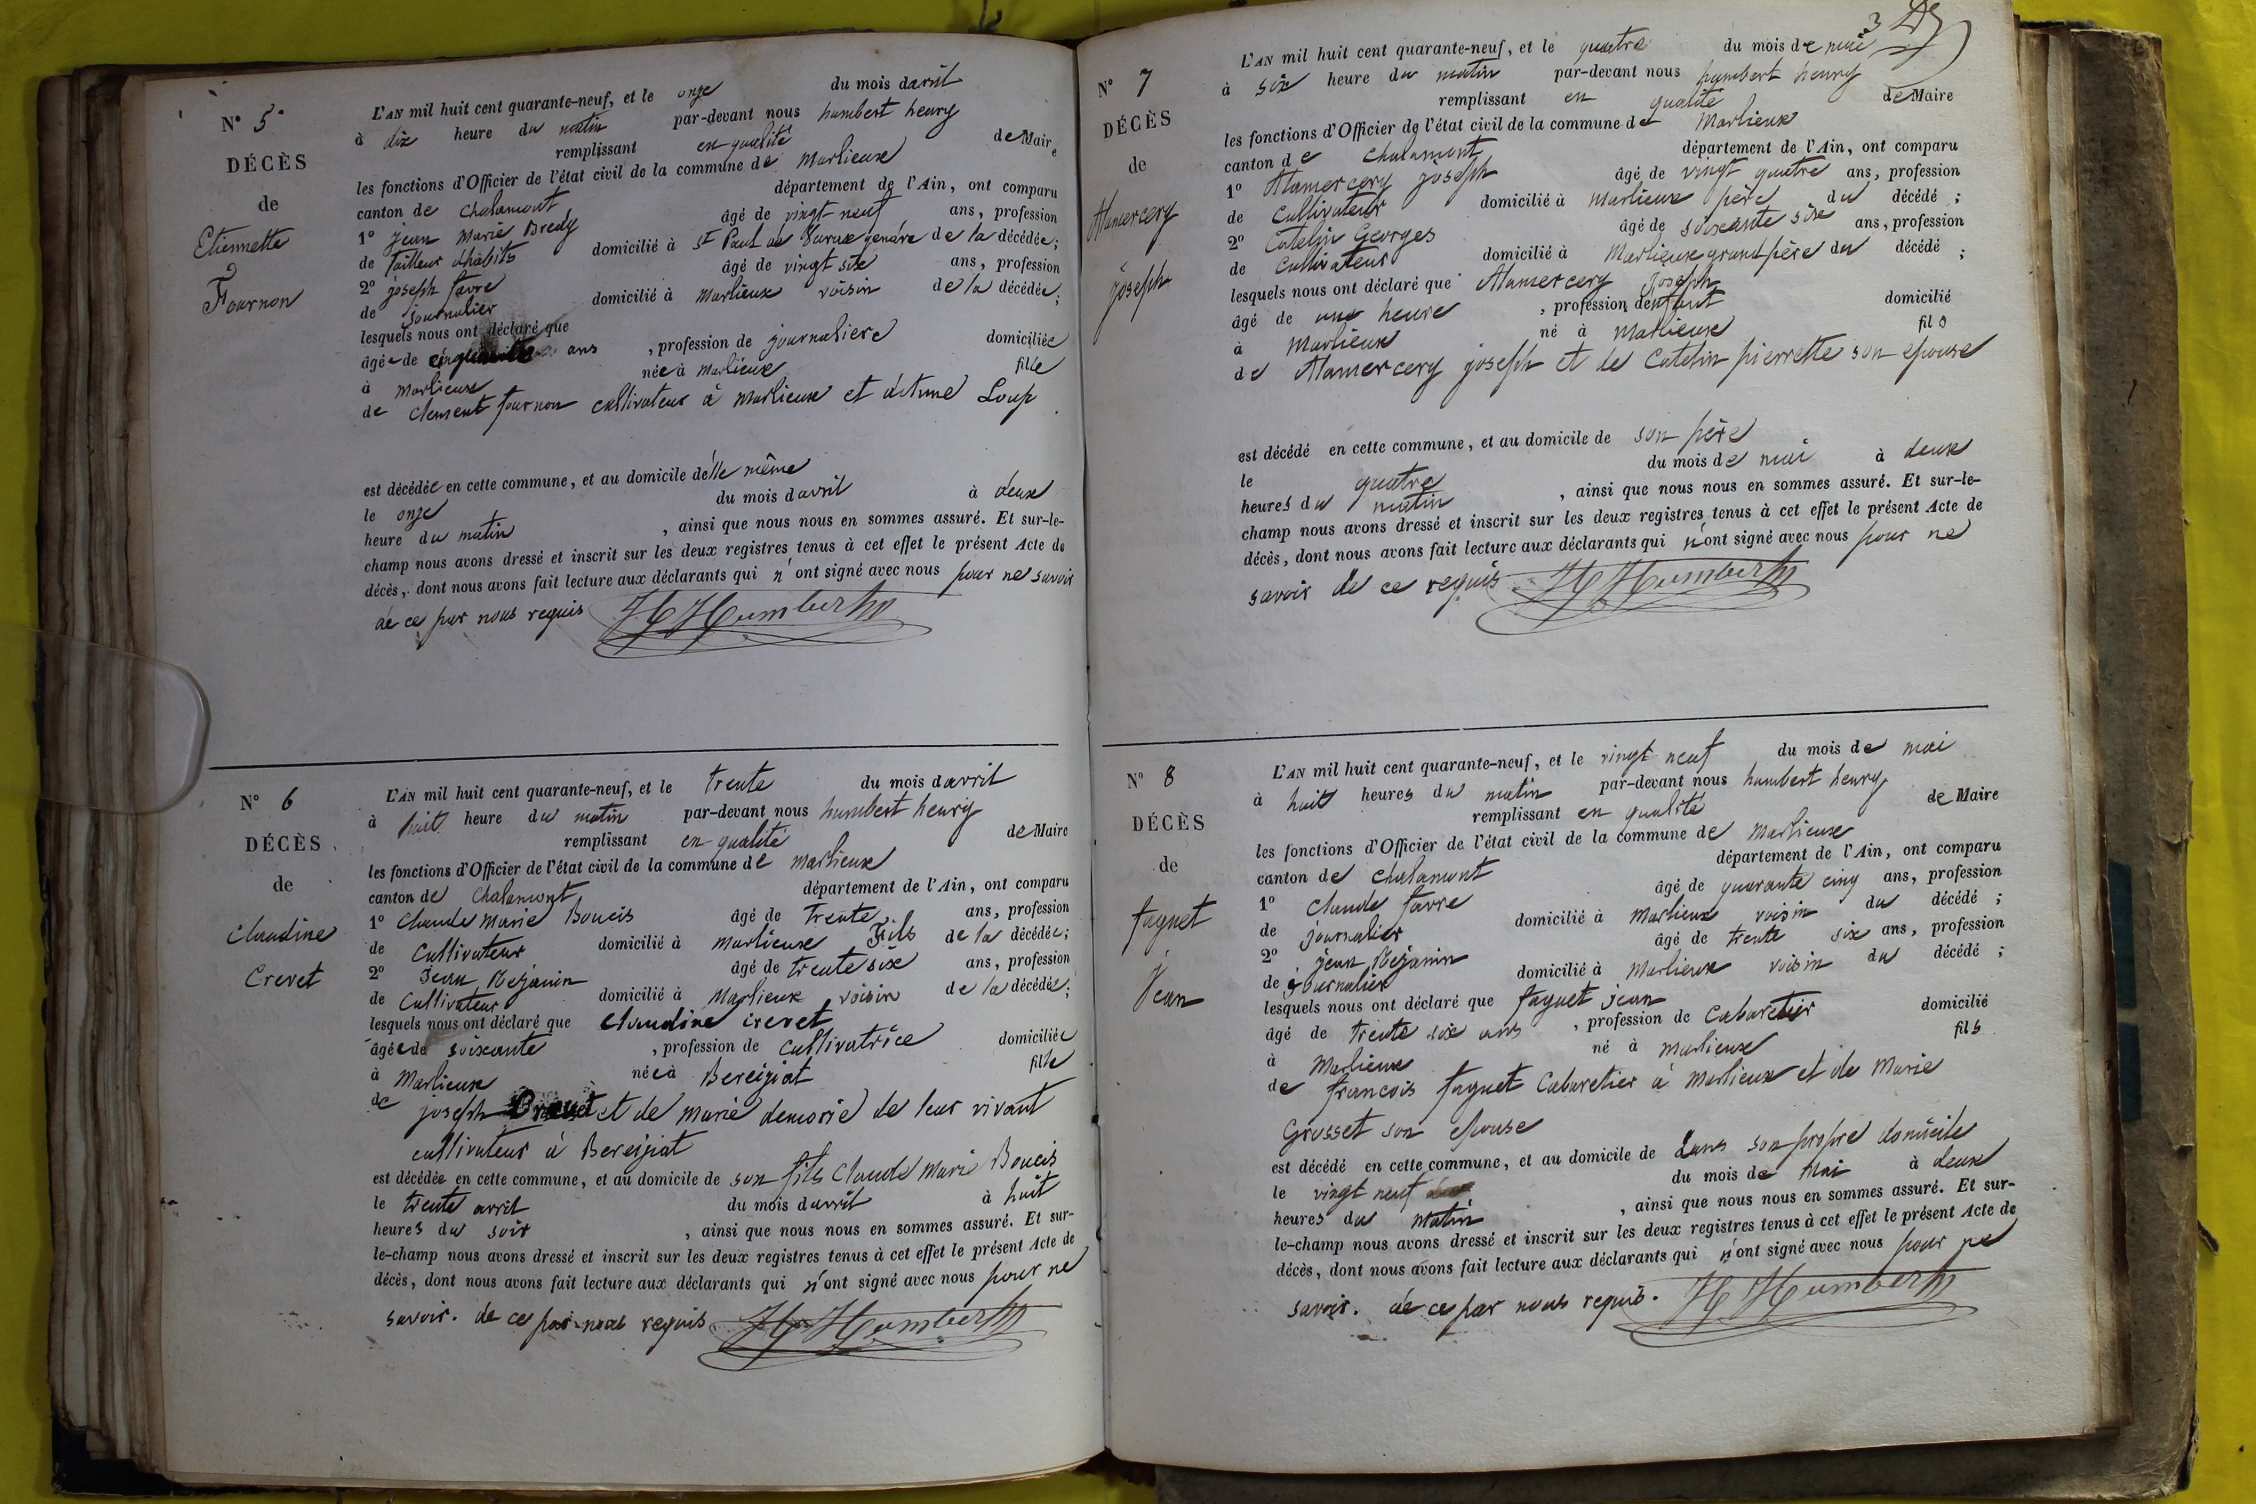 N° 5
DÉCÈS
de
Etiennette
Fournon
L'AN mil huit cent quarante-neuf, et le onze du mois davril
à dix heure du matin par-devant nous humbert henry
remplissant en qualité de Maire
les fonctions d'Officier de l'état civil de la commune de Marlieux
canton de chalamont département de l'Ain, ont comparu
1° jean marie Bredy âgé de vingt neuf ans, profession
de Tailleur d'habits domicilié à St Paul de Varax gendre de la décédée;
2° joseph favre âgé de vingt six ans, profession
de journalier domicilié à marlieux voisin de la décédée;
lesquels nous ont déclaré que
âgée de ans, profession de journaliere domiciliée
à marlieux née à marlieux fille
de clement fournon cultivateur à marlieux et d'Anne Loup
est décédée en cette commune, et au domicile d'elle même
le onze du mois davril à deux
heure du matin, ainsi que nous nous en sommes assuré. Et sur-le-
champ nous avons dressé et inscrit sur les deux registres tenus à cet effet le présent Acte de
décès, dont nous avons fait lecture aux déclarants qui n'ont signé avec nous pour ne savoir
de ce par nous requis H Humbert
N° 6
DÉCÈS
de
Claudine
Crevet
L'AN mil huit cent quarante-neuf, et le trente du mois davril
à huit heure du matin par-devant nous humbert henry
remplissant en qualité de Maire
les fonctions d'Officier de l'état civil de la commune de marlieux
canton de chalamont département de l'Ain, ont comparu
1° Claude Marie Boucis âgé de trente ans, profession
de Cultivateur domicilié à marlieux Fils de la décédée;
2° Jean Mejanin âgé de trente six ans, profession
de Cultivateur domicilié à Marlieux voisin de la décédée;
lesquels nous ont déclaré que Claudine crevet
âgée de soixante, profession de cultivatrice domiciliée
à Marlieux née à Bereiziat fille
de joseph et de marie demorie de leur vivant
cultivateur à Bereiziat
est décédée en cette commune, et au domicile de son fils Claude Marie Boucis
le trente avril du mois davril à huit
heures du soir, ainsi que nous nous en sommes assuré. Et sur-
le-champ nous avons dressé et inscrit sur les deux registres tenus à cet effet le présent Acte de
décès, dont nous avons fait lecture aux déclarants qui n'ont signé avec nous pour ne
savoir. de ce par nous requis H Humbert
3
N° 7
DÉCÈS
de
Alamercery
joseph
L'AN mil huit cent quarante-neuf, et le quatre du mois de mai
à six heure du matin par-devant nous humbert henry
remplissant en qualité de Maire
les fonctions d'Officier de l'état civil de la commune de Marlieux
canton de chalamont département de l'Ain, ont comparu
1° Alamercery joseph âgé de vingt quatre ans, profession
de Cultivateur domicilié à marlieux père du décédé;
2° Catelin Georges âgé de soixante six ans, profession
de Cultivateur domicilié à Marlieux grand père du décédé;
lesquels nous ont déclaré que Alamercery joseph
âgé de une heure, profession denfant domicilié
à Marlieux né à Marlieux fils
de Alamercery joseph et de Catelin pierrette son epouse
est décédé en cette commune, et au domicile de son père
le quatre du mois de mai à deux
heures du matin, ainsi que nous nous en sommes assuré. Et sur-le-
champ nous avons dressé et inscrit sur les deux registres tenus à cet effet le présent Acte de
décès, dont nous avons fait lecture aux déclarants qui n'ont signé avec nous pour ne
savoir de ce requis H Humbert
N° 8
DÉCÈS
de
faguet
Jean
L'AN mil huit cent quarante-neuf, et le vingt neuf du mois de mai
à huit heures du matin par-devant nous humbert henry
remplissant en qualité de Maire
les fonctions d'Officier de l'état civil de la commune de Marlieux
canton de chalamont département de l'Ain, ont comparu
1° claude favre âgé de quarante cinq ans, profession
de journalier domicilié à Marlieux voisin du décédé;
2° jean Mejanin âgé de trente six ans, profession
de journalier domicilié à Marlieux voisin du décédé;
lesquels nous ont déclaré que faguet jean
âgé de trente six ans, profession de Cabaretier domicilié
à Marlieux né à marlieux fils
de francois faguet Cabaretier à Marlieux et de Marie
Grosset son epouse
est décédé en cette commune, et au domicile de dans son propre domicile
le vingt neuf du mois de Mai à deux
heures du matin, ainsi que nous nous en sommes assuré. Et sur-
le-champ nous avons dressé et inscrit sur les deux registres tenus à cet effet le présent Acte de
décès, dont nous avons fait lecture aux déclarants qui n'ont signé avec nous pour ne
savoir. de ce par nous requis. H Humbert